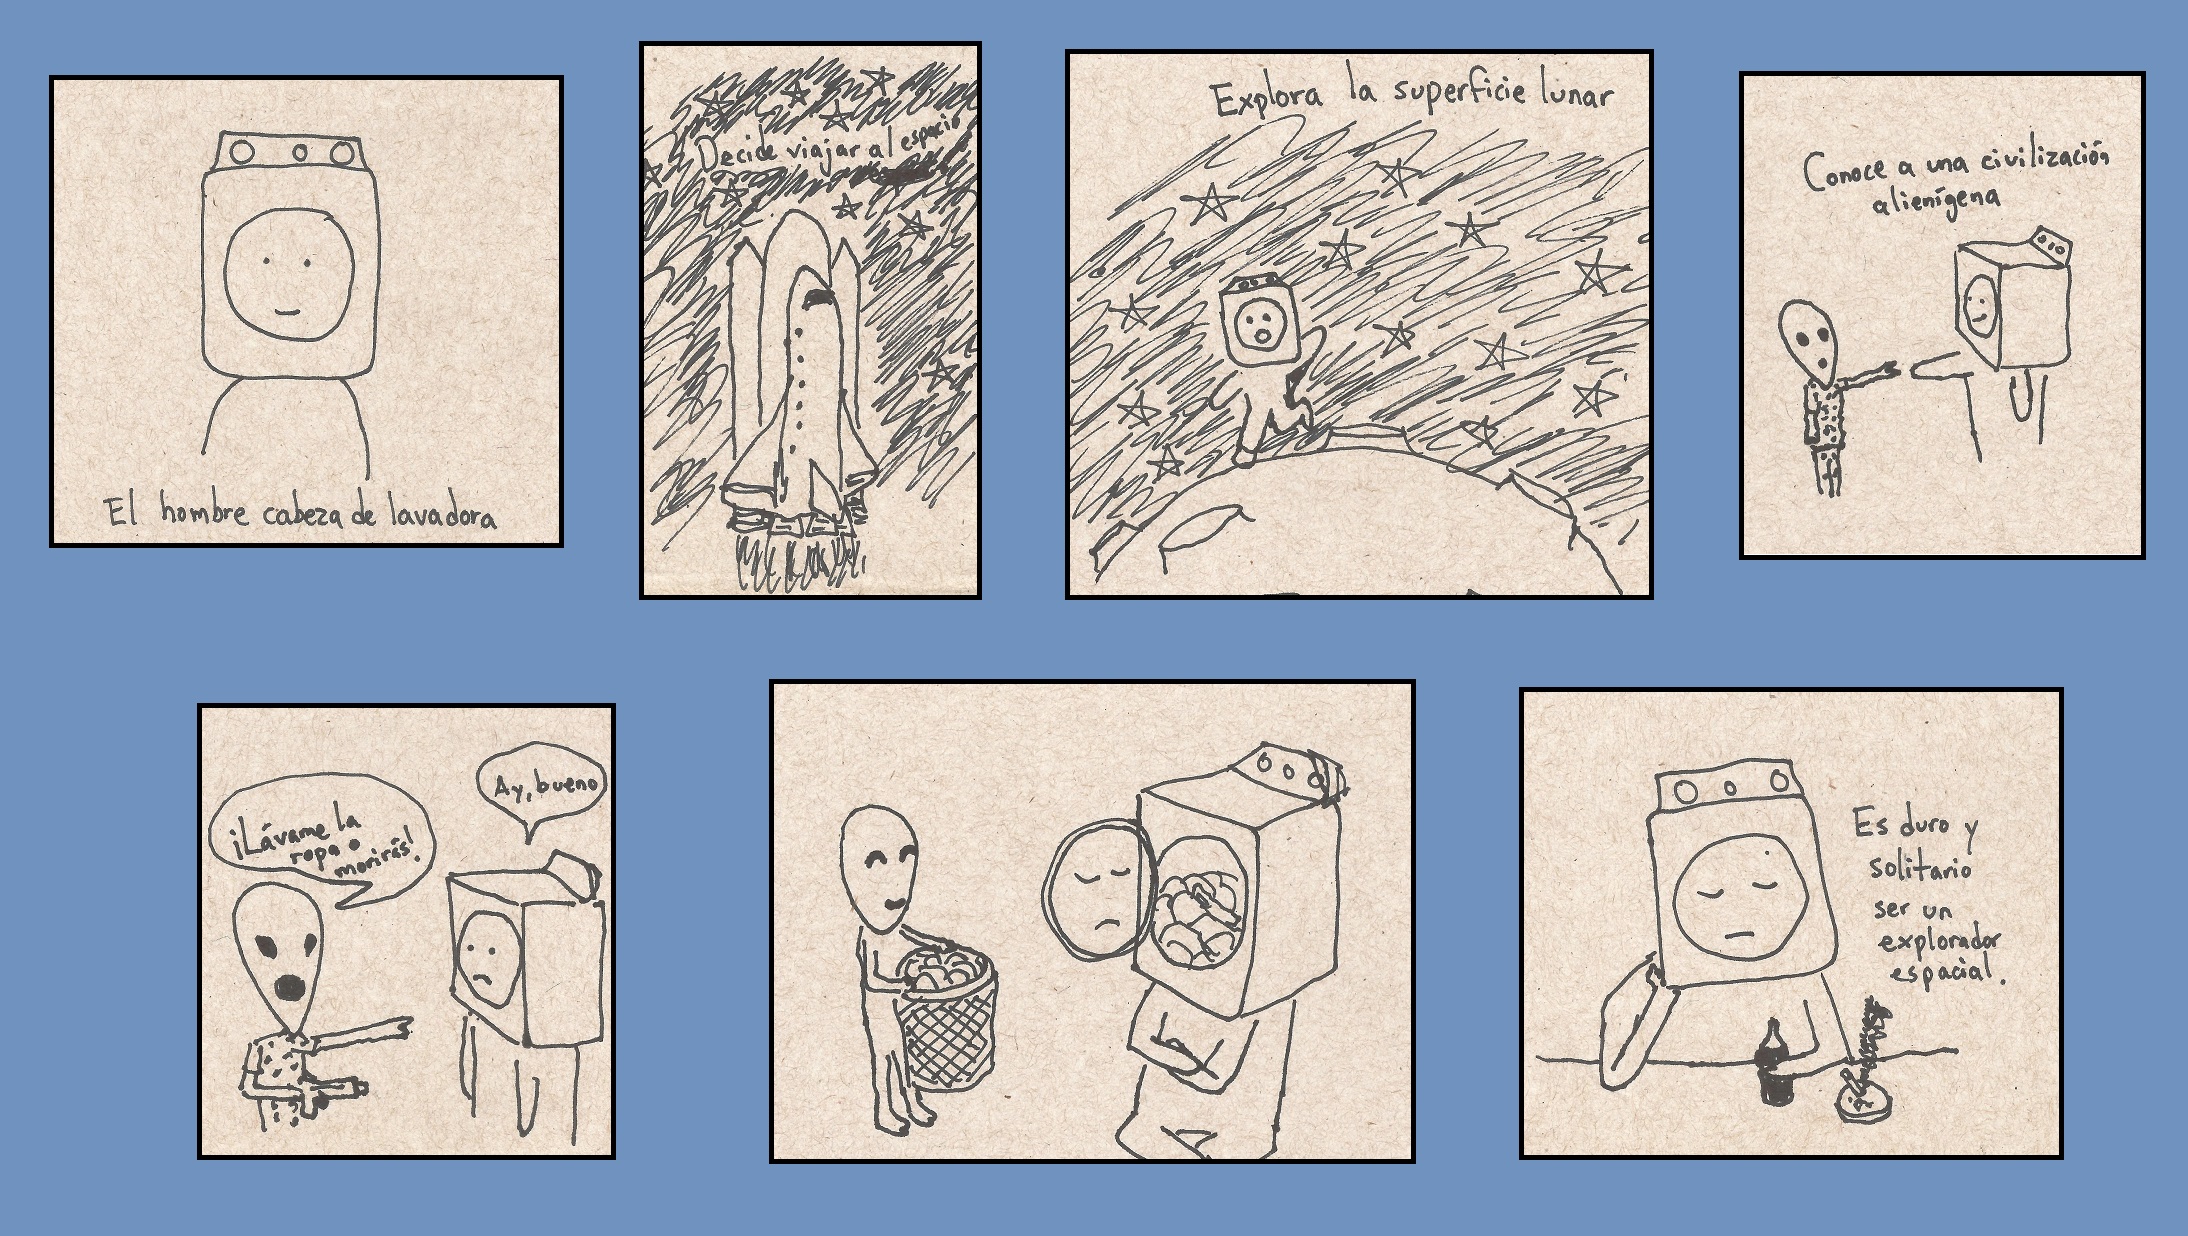 El hombre cabeza de lavadora
Decide viajar al espacio
Explora la superficie lunar
Conoce a una civilización
alienígena
¡Lávame la
ropa o
morirás!
Ay, bueno
Es duro y
solitario
ser un
explorador
espacial.